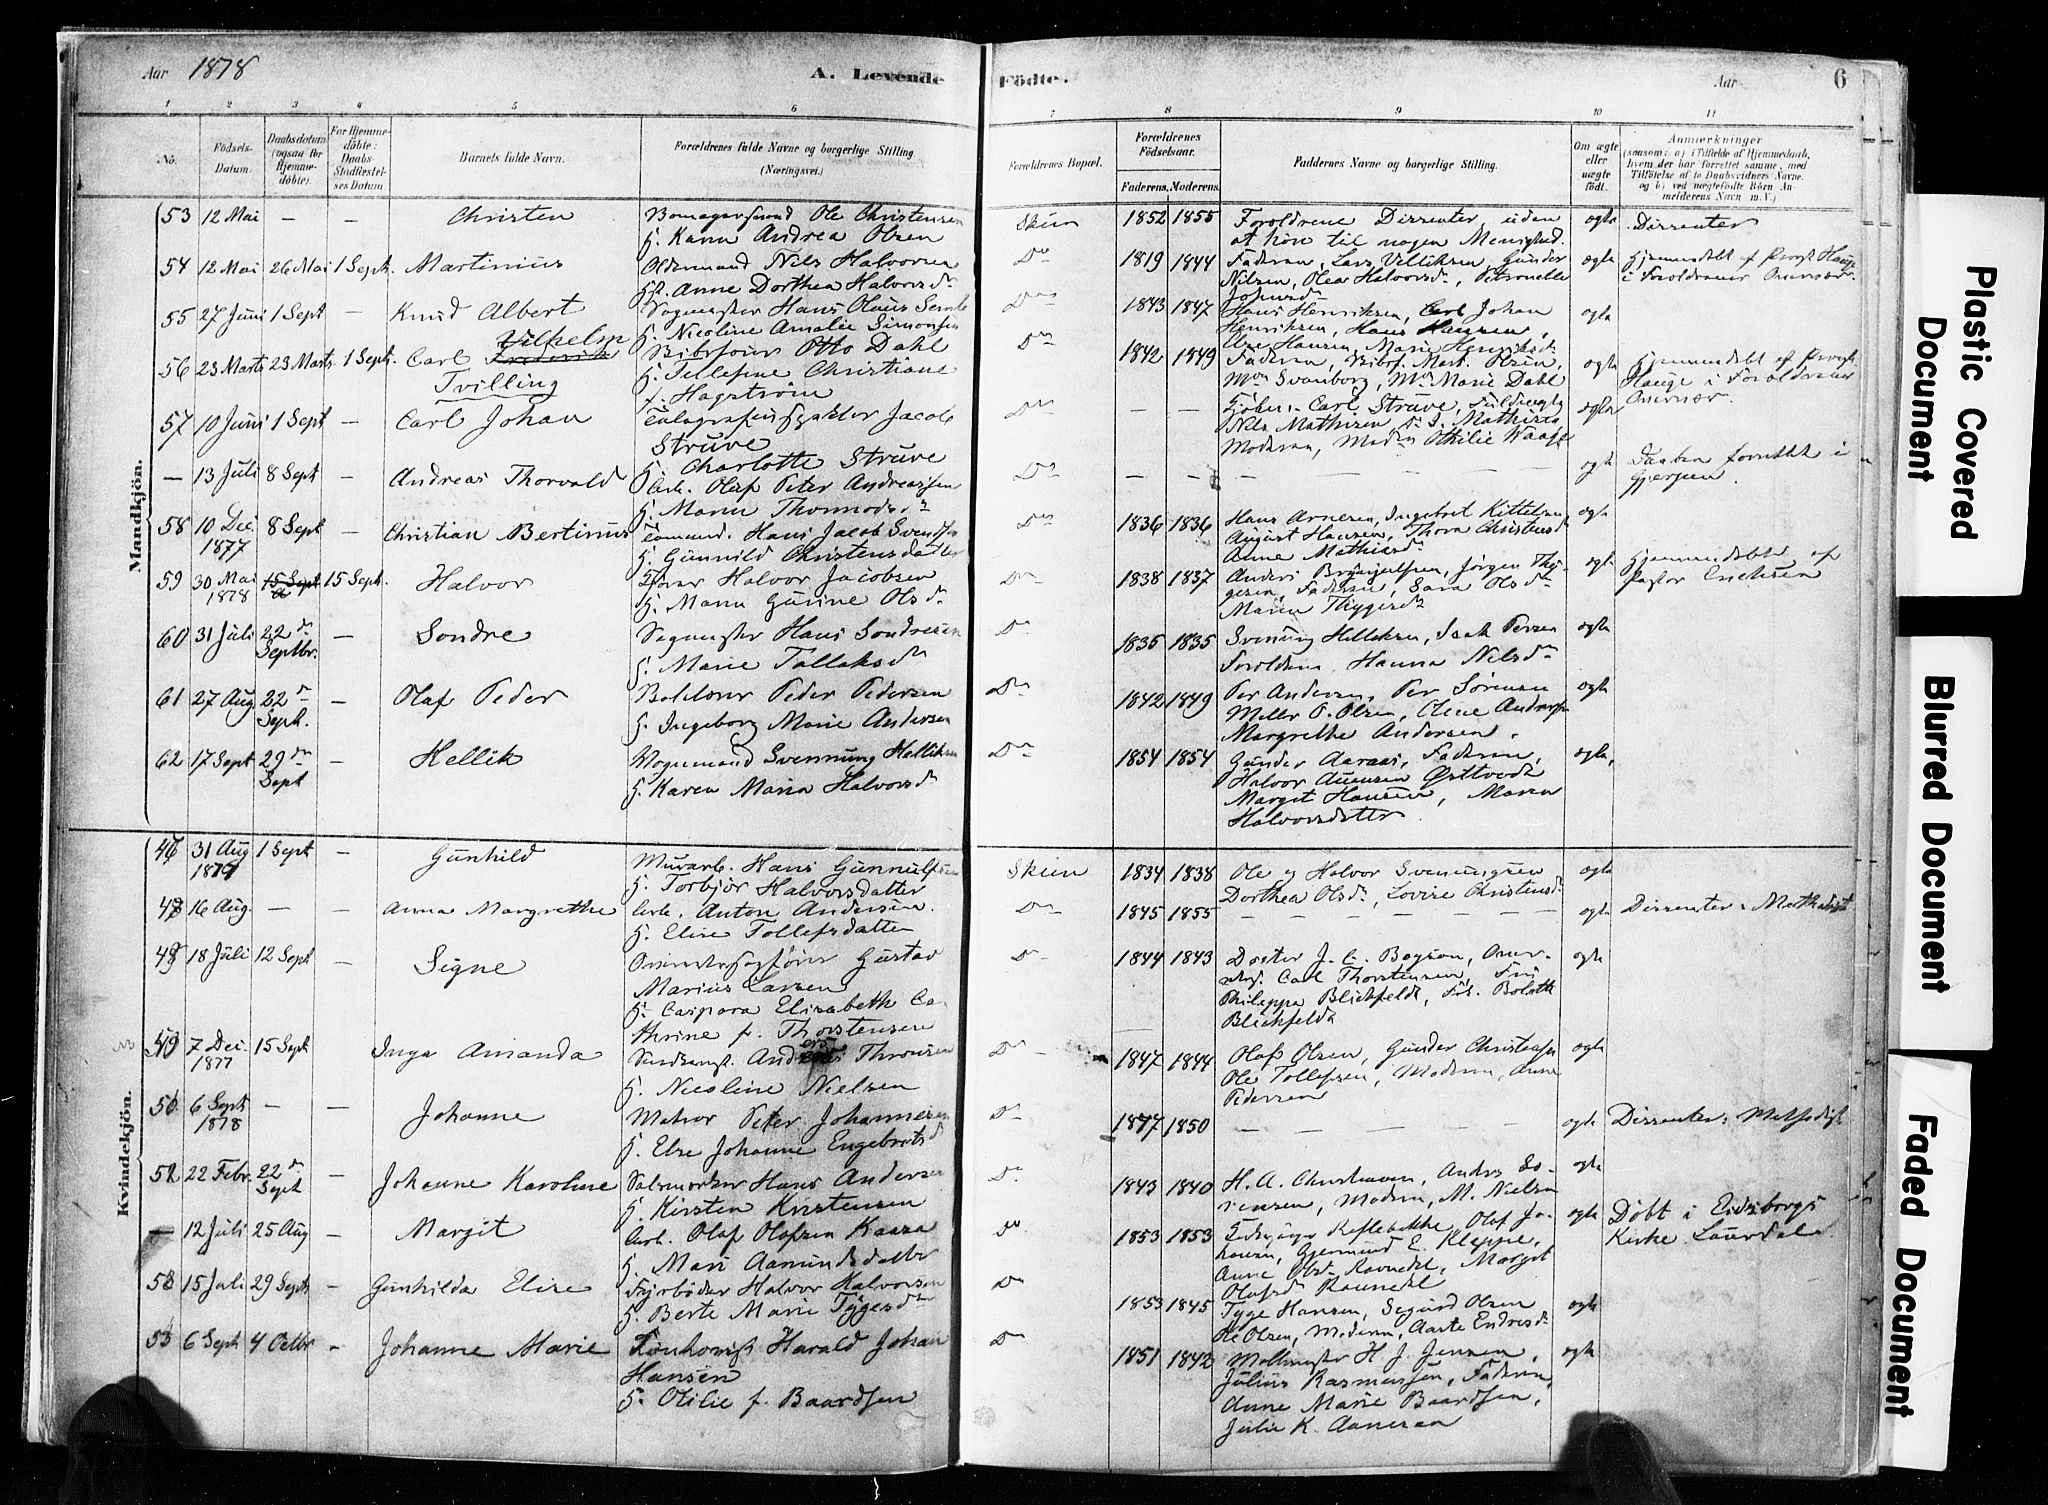 Aar 1878
A. Levende
Födte.
Aar
6
1 2 3 4 5 6 7 8 9 10 11
No.
Födsels-
Datum.
Daabsdatum
(ogsaa for
Hjemme-
döbte).
For Hjemme-
döbte:
Daabs-
Stadfæstel-
ses Datum
Barnets fulde Navn.
Forældrenes fulde Navne og borgerlige Stilling
(Næringsvei.)
Forældrenes Bopæl.
Forældrenes
Födselsaar.
Faderens. Moderens.
Faddernes Navne og borgerlige Stilling.
Om ægte
eller
uægte
födt.
Anmærkninger
(saasom: a) i Tilfælde af Hjemmedaab,
hvem der har forrettet samme, med
Tilföielse af to Daabsvidners Navne.
og b) ved uægtefödte Börn An-
melderens Navn m. V.)
Mandkjön.
53 12 Mai — — Christen
Ole Christensen
H. Karen Andrea Olsen
Skien 1852 1855 Foroldrene Dissenter, uden
at høre til nogen Menighed.
ogta Dissenter
54 12 Mai 26 Mai 1 Sept. Martinius
Oldermand Nils Halvorsen
Anne Dorthea Halvorsdr
Do 1819 1844 Faderen, Lars Villiksen, Gunder
Nilsen, Olea Halvorsdr, Petronelle
Johnsdr
ogta Hjemmedøbt af Provst Hauge
i Foroldrenes Overvær.
55 27 Juni 1 Sept — Knud Albert
Hans Olaus
H. Nicoline Amalie Simonsen
Do 1843 1847 Hans Henriksen, Carl Johan
Henriksen, Hans Hansen,
Else Hansen, Marie Henriksdr
ogta
56 23 Marts 23 Marts 1 Sept. Carl Frederik
Vilhelm
Tvilling
Otto Dahl
H. Christiane
f. Hagstrøm
Do 1842 1849 Faderen, Mart. Olsen,
Svanborg, Marie Dahl
ogta Hjemmedøbt af Provst
Hauge i Foroldrenes
Overvær.
57 10 Juni 1 Sept — Carl Johan
Telegrafinspektør Jacob
Struve
H. Charlotte Struve
Do — — Carl Struve, Fuldmægtig
Nils Mathisen
Moderen, Othilie Waage
ogta
— 13 Juli 8 Sept — Andreas Thorvald
Arb. Olaf Peter Andreassen
H. Maren Thormodsdr
Do — — — — — ogta Daaben forrettet i
Gjerpen.
58 10 Dec.
1877 8 Sept — Christian Bertinius
Tommand. Hans Jacob Svendsen
H. Gunnild Christensdatter
Do 1836 1836 Hans Arnesen, Ingebret Kittelsen
August Hansen, Thora Christensdr
Anne Mathisdr
ogta
59 30 Mai
1878 15 Sept 15 Sept. Halvor
Halvor Jacobsen
H. Maren Gurine Olsdr
Do 1838 1837 Anders Brynjulfsen, Jørgen Thy-
gesen, Faderen, Sara Olsdr
Maren Thygesdr
ogta Hjemmedøbt af
Pastor Erichsen
60 31 Juli 22de
Septbr. — Sondre
Sagmester Hans Sondresen
H. Marie Tollaksdr
Do 1835 1835 Svenung Helliksen, Isak Persen
Foroldrene, Hanna Nilsdr
ogta
61 27 Aug. 22de
Sept. — Olaf Peder
Peder Pedersen
H. Ingeborg Marie Andersen
Do 1842 1849 Per Andersen, Per Sørensen
Møller P. Olsen, Olene Andersen
Margrethe Andersen.
ogta
62 17 Sept 29de
Sept — Hellik
Vognmand Svennung Helliksen
H. Karen Maria Halvorsdr
Do 1854 1854 Gunder Aaraas, Faderen,
Halvor Auensen Østtvedt
Margit Hansen, Maren
Halvorsdatter.
ogta,
Kvindekjön.
46 31 Aug
1877 1 Sept — Gunhild
Murarb. Hans Gunnulfsen
H. Torbjør Halvorsdatter
Skien 1834 1838 Ole og Halvor Svenungsen
Dorthea Olsdr, Lovise Christensdr
ogta
47 16 Aug. — — Anna Margrethe
Arb. Anton Andersen.
H. Elise Tollefsdatter
Do 1845 1855 — — — — — ogta Dissenter: Methodist
48 18 Juli 12 Sept — Signe
Gustav
Marius Larsen
H. Caspara Elisabeth Ca-
thrine f. Thorstensen
Do 1844 1843 Doctor J. C. Boyson, Over-
Carl Thorstensen, Fru
Philippa Blichfeldt, Frk. Bolette
Blichfeldt
ogta
49 7 Dec.
1877 15 Sept — Inga Amanda
Thronsen
H. Nicoline Nielsen
Do 1847 1844 Olaf Olsen, Gunder Christensen
Ole Tollefsen, Moderen, Anne
Pedersen
ogta
50 6 Sept
1878 — — Johanne
Matros Peter Johannesen
H. Else Johanne Engebretsdr
Do 1847 1850 — — — — — ogta Dissenter: Methodist
51 22 Febr. 22de
Sept — Johanne Karoline
Hans Andersen
H. Kirsten Kristensen
Do 1843 1840 H. A. Christensen, Anders So-
rensen, Moderen, M. Nielsen
ogta
— 12 Juli 25 Aug — Margit
Arb. Olaf Olafsen Kaasa
H. Mari Aamundsdatter
Do 1853 1853 Keflebekke, Olaf Jo-
hansen, Gjermund E. Kleppe,
Anne Olsdr Ravnedal, Margit
Olafsdr Ravnedal
ogta Døbt i Eidsborgs
Kirke Laurdal.
52 15 Juli 29 Septr — Gunhilda Elise
Fyrbøder Halvor Halvorsen
H. Berte Marie Tygesdr
Do 1853 1845 Tyge Hansen, Sigurd Olsen
Ole Olsen, Moderen, Aaste Endresdr
ogta
53 6 Sept 4 Octbr — Johanne Marie
Harald Johan
Hansen
H. Otilie f. Baardsen
Do 1851 1842 H. J. Jensen,
Julius Rasmussen, Faderen,
Anne Marie Baardsen,
Julie K. Aanesen
ogta
Plastic Covered Document
Blurred Document
Faded Document